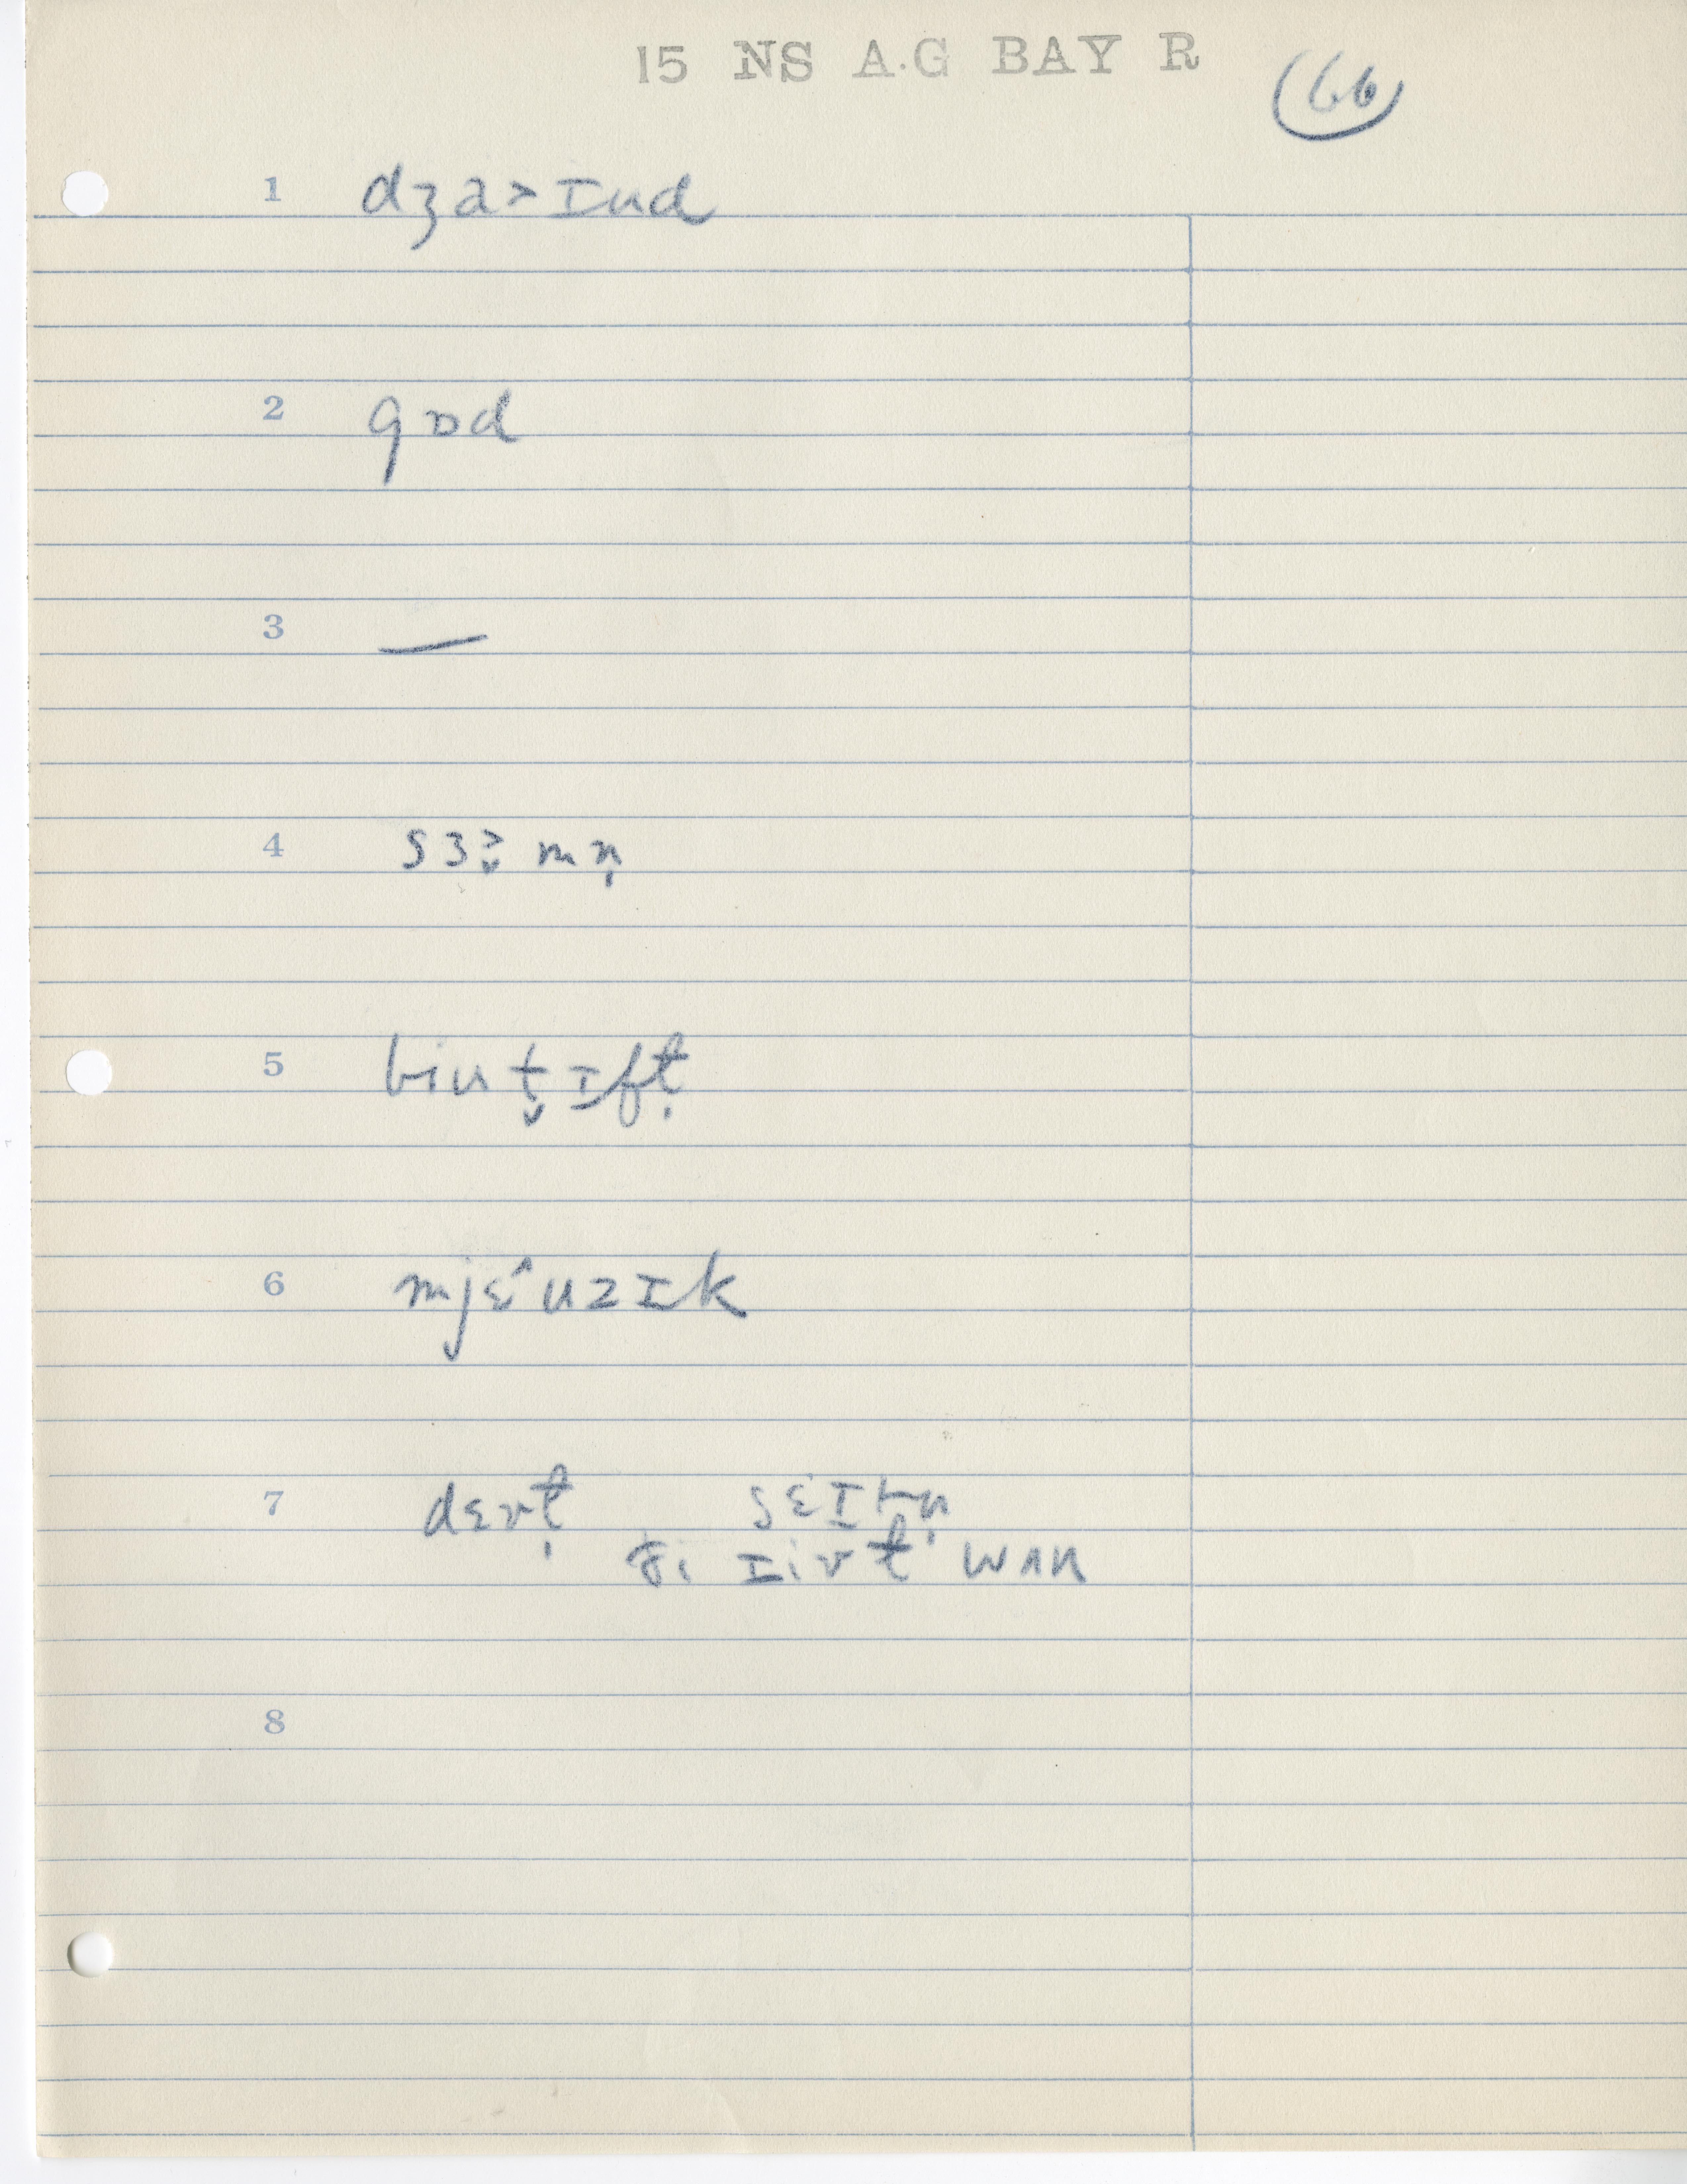 15 NS A.G BAY R
66
1 dʒa˃ɪnd
2 gɒd
3 —
4 sɜ˃̬mn̩
5 biut̬ɪft̩
6 mjɛ^uzɪk
7 dɛvt̩ seɪtn̩
ði ɪivt̩ wʌn
8